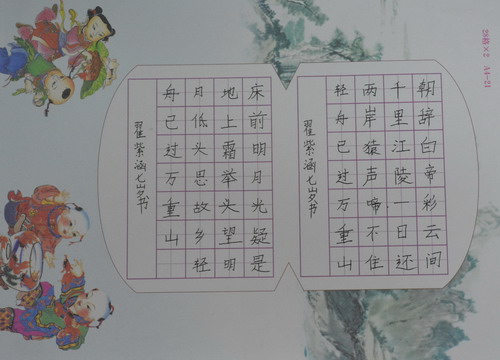 28格×2 A4-21
朝辞白帝彩云间
千里江陵一日还
两岸猿声啼不住
轻舟已过万重山
翟紫涵七岁书
床前明月光疑是
地上霜举头望明
月低头思故乡轻
舟已过万重山
翟紫涵七岁书